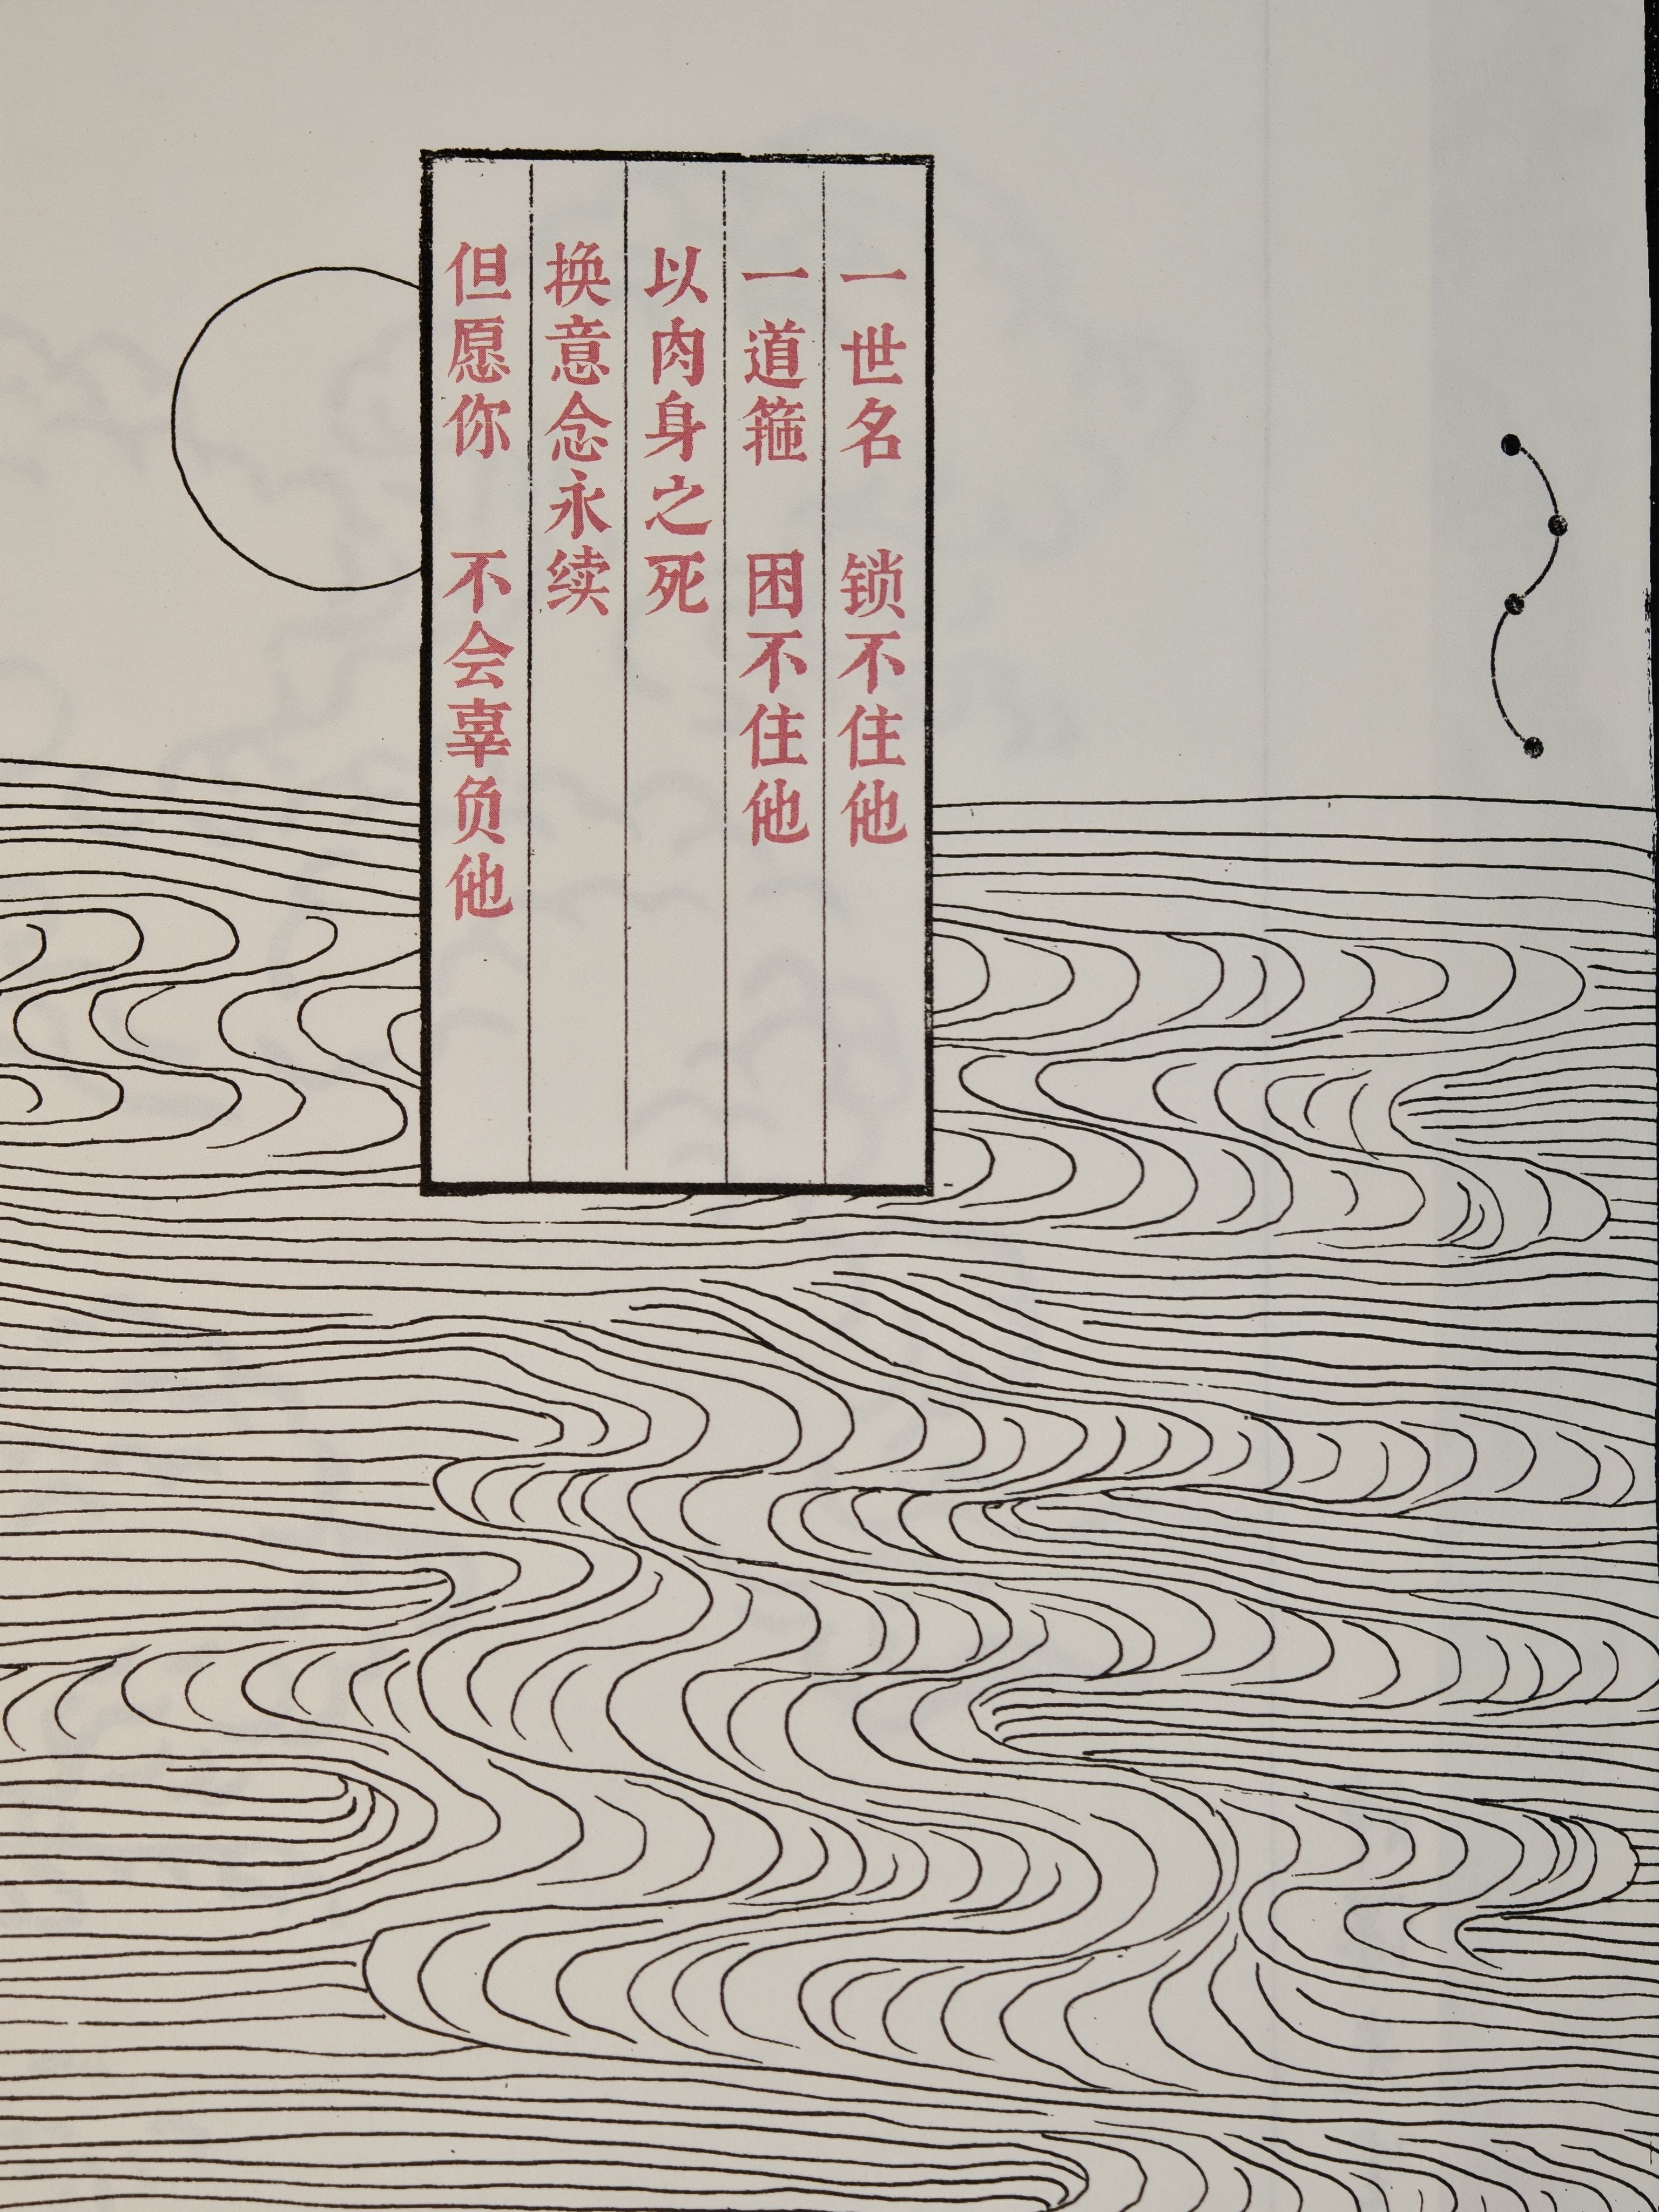 一世名 锁不住他
一道箍 困不住他
以肉身之死
换意念永续
但愿你 不会辜负他